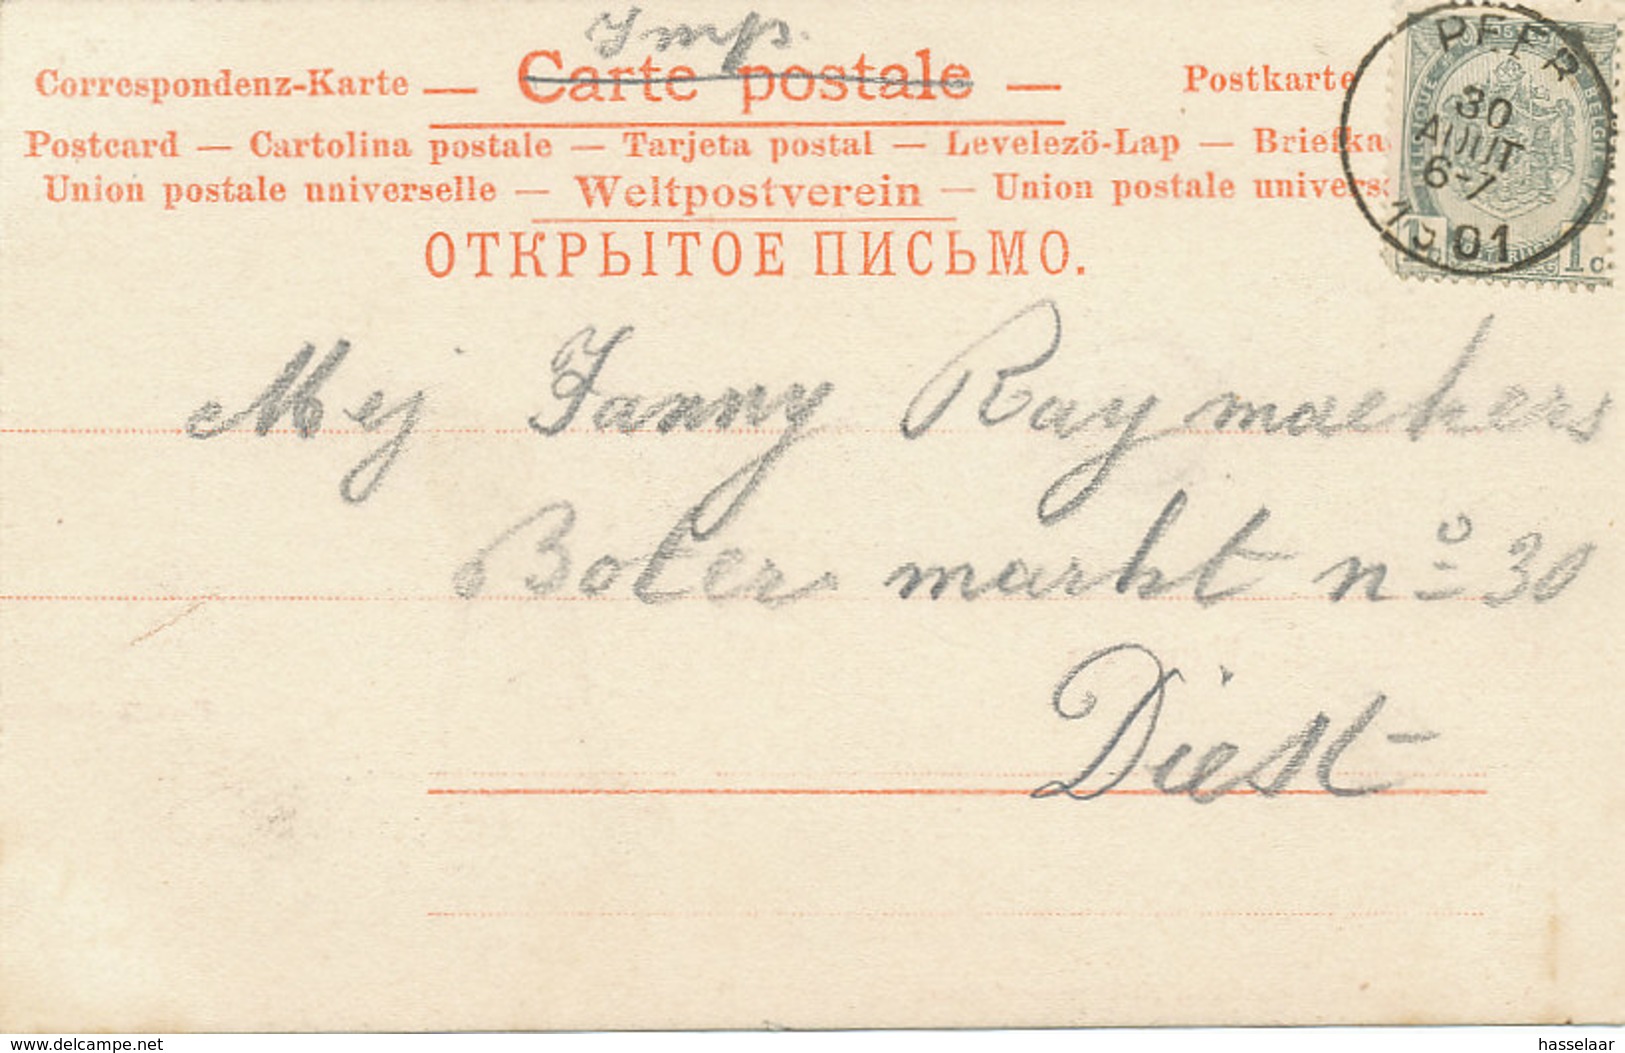 Imp.
Correspondenz-Karte — Carte postale — Postkarte
Postcard — Cartolina postale — Tarjeta postal — Levelezö-Lap — Briefka
Union postale universelle — Weltpostverein — Union postale univers
ОТКРЫТОЕ ПИСЬМО.
PEER
30
AOUT
6-7
1901
1c
Mej Fanny Raymaekers
Boter markt nº 30
Diest
www.delcampe.net
hasselaar